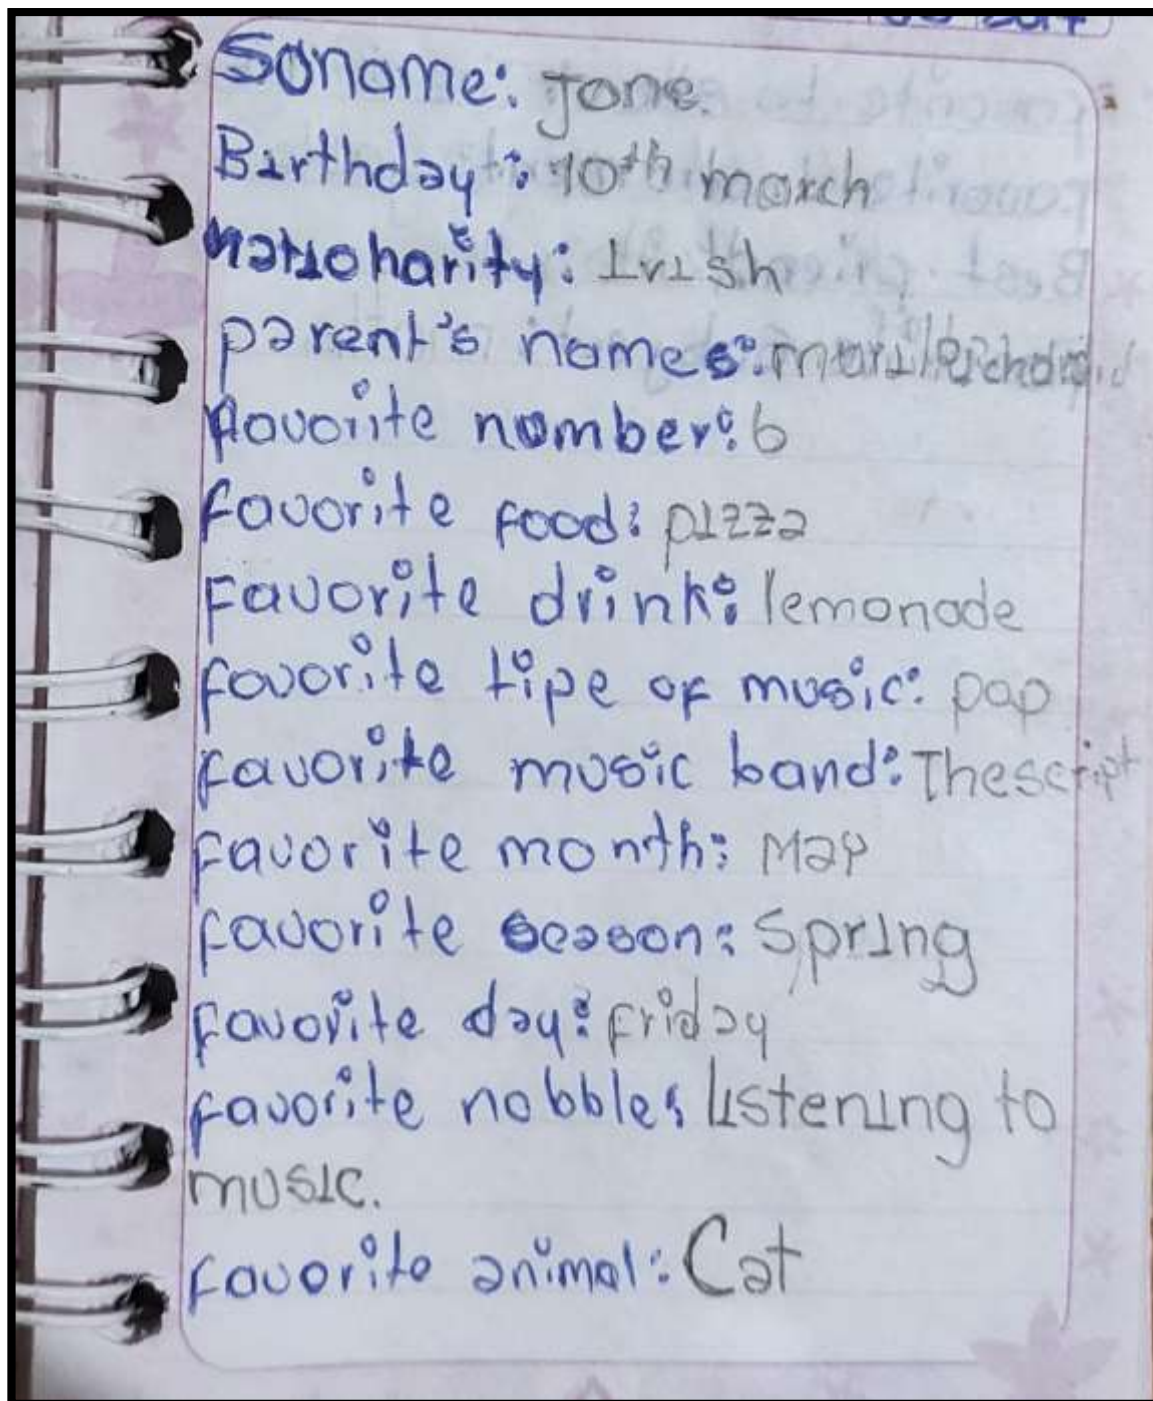 2017
Soname: Jone.
Birthday: 10th march
natioharity: Irish
parent's names:
Favoiite number: 6
favorite food: pizza
Favorite drink: lemonade
favorite tipe of music: pop
favorite music band: Thescript
favorite month: May
favorite season: Spring
favorite day: friday
favorite nobble: listening to
music.
favorite animal: Cat